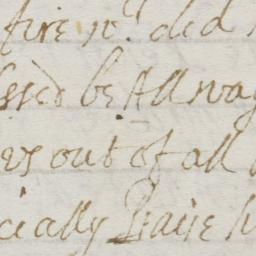 fire yt did
ssed be All way
es out of all
cially Praise h